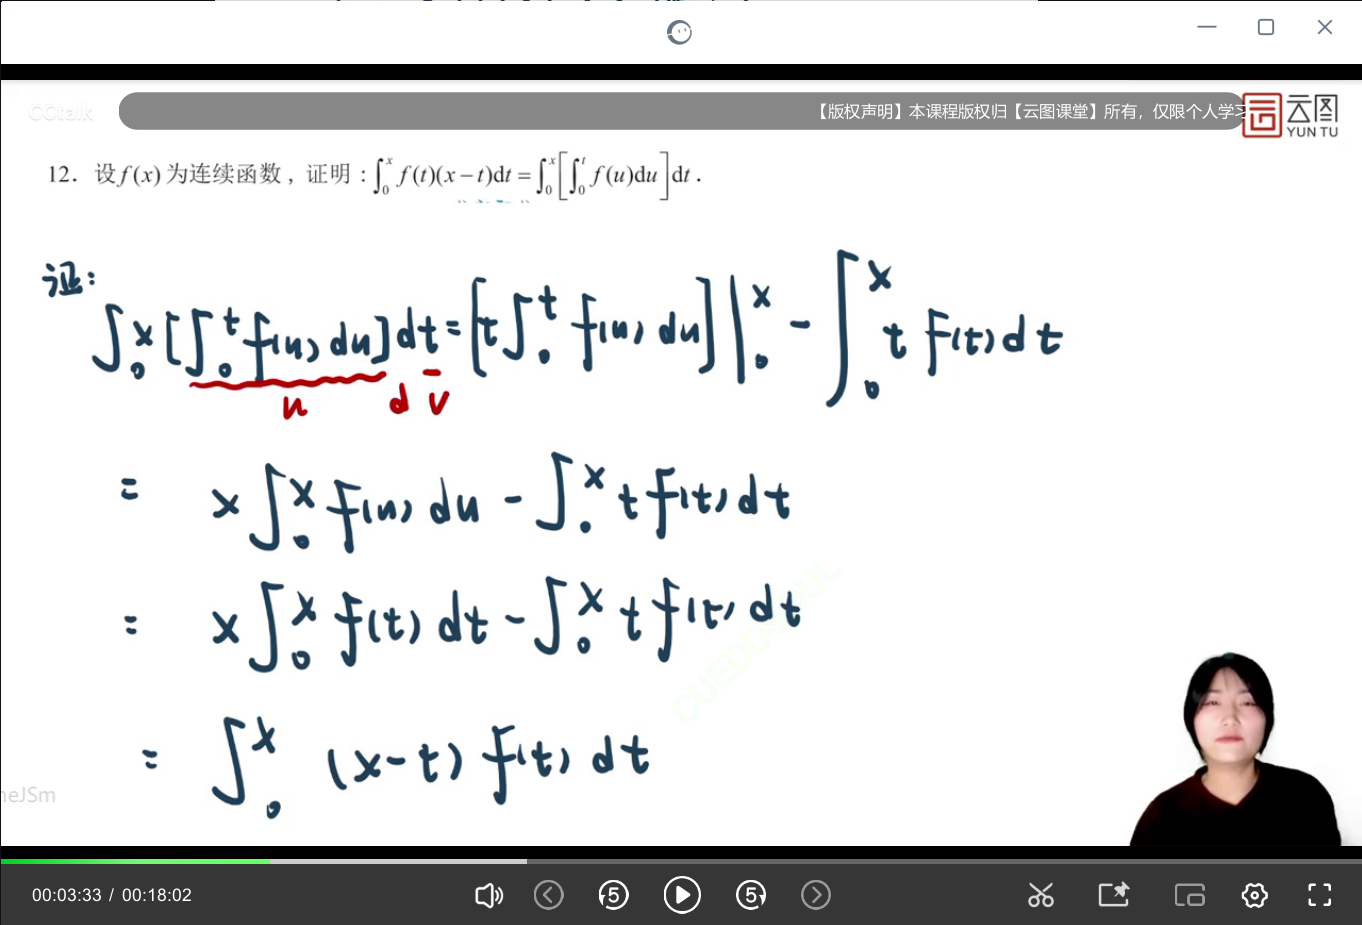 CCtalk
【版权声明】本课程版权归【云图课堂】所有，仅限个人学习
云图
YUN TU
12．设 f(x) 为连续函数，证明：∫₀ˣ f(t)(x−t)dt = ∫₀ˣ [∫₀ᵗ f(u)du] dt．
证：
∫₀ˣ [∫₀ᵗ f(u) du] dt = [t ∫₀ᵗ f(u) du] |₀ˣ − ∫₀ˣ t f(t) dt
u d v
= x ∫₀ˣ f(u) du − ∫₀ˣ t f(t) dt
= x ∫₀ˣ f(t) dt − ∫₀ˣ t f(t) dt
= ∫₀ˣ (x−t) f(t) dt
neJSm
00:03:33 / 00:18:02
5
5